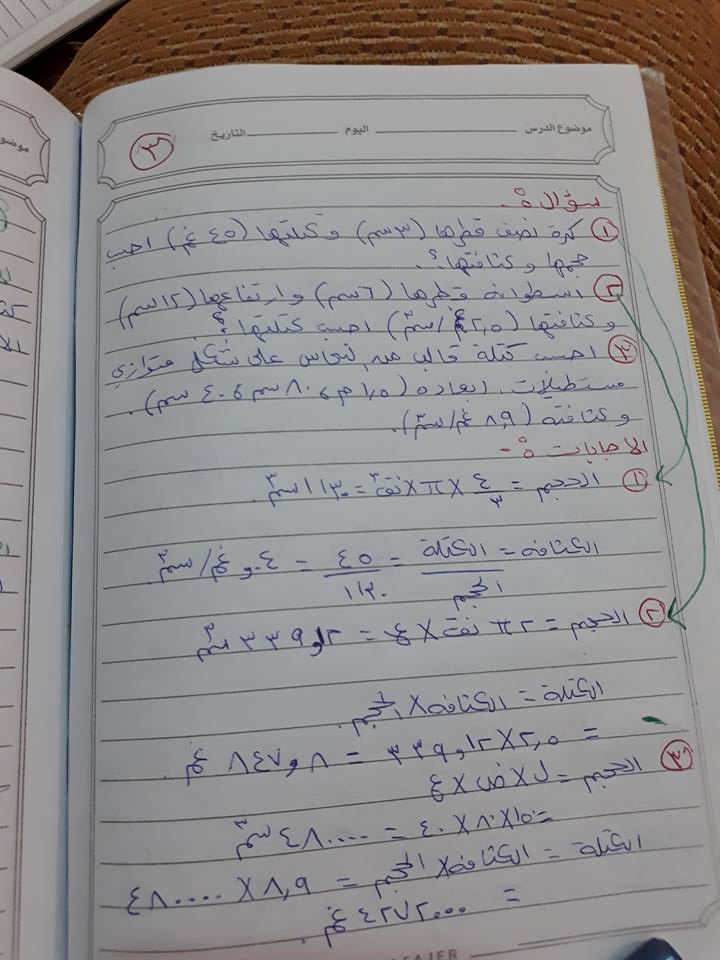 موضوع الدرس اليوم التاريخ
٣
سؤال ٥:-
١ كرة نصف قطرها (٣سم) وكتلتها (٤٥ غم) احسب
حجمها وكثافتها؟
٢ اسطوانة قطرها (٦سم) وارتفاعها (١٢سم)
وكثافتها (٢,٥غم/سم٣) احسب كتلتها؟
٣ احسب كتلة قالب من نحاس على شكل متوازي
مستطيلات ابعاده ( ٨٠سم، ٤٠سم).
وكثافته (٨,٩ غم/سم٣).
الاجابات :-
١ الحجم = ٤/٣ × π × نق٣ = ١١٣٠سم٣
الكثافة = الكتلة/الحجم = ٤٥/١١٣٠ = ٠,٤ غم/سم٣
٢ الحجم = π٢ نق × ع = ٣٣٩,١٢سم٣
الكتلة = الكثافة × الحجم
= ٢,٥ × ٣٣٩,١٢ = ٨٤٧,٨ غم.
٣ الحجم = ل × ض × ع
= ٤٠ × ٨٠ × = ٤٨٠٠٠٠ سم٣
الكتلة = الكثافة × الحجم = ٨,٩ × ٤٨٠٠٠٠
= ٤٢٧٢٠٠٠ غم.